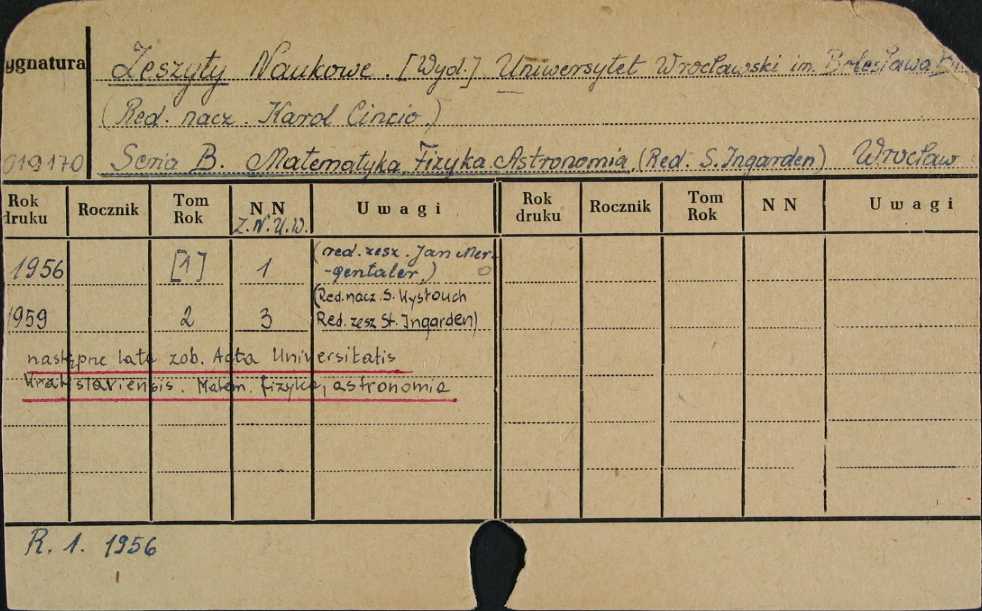 ygnatura
Zeszyty Naukowe. [Wyd.] Uniwersytet Wrocławski im. Bolesława
(Red. nacz. Karol Cincio)
019170 Seria B. Matematyka, Fizyka, Astronomia, (Red. S. Ingarden) Wrocław
Rok druku Rocznik Tom Rok NN Uwagi Rok druku Rocznik Tom Rok NN Uwagi
Z.N.U.W.
1956 [1] 1 (red. zesz. Jan Mer-
-gentaler)
(Red. nacz. S. Kystouch
1959 2 3 Red. zesz St. Ingarden)
następne lata zob. Acta Universitatis
Wratislaviensis. Matem. fizyka, astronomia
R. 1. 1956